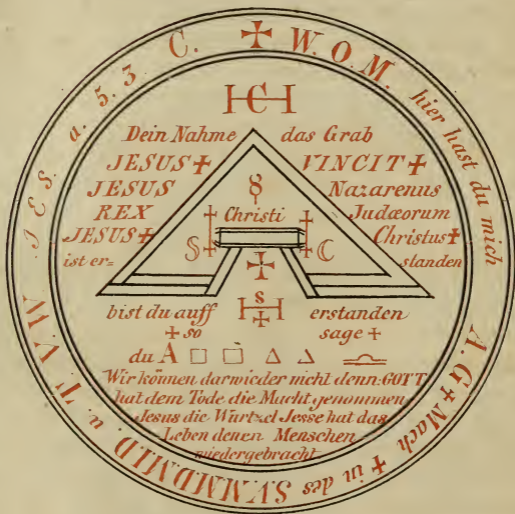 ✝ W. O. M. hier hast du mich A. G ✝ Mach ✝ in des S.V.M.I.D.M.I.D. u. T. V. W. I E S. a. 5. 3 C.
Dein Nahme das Grab
JESUS ✝ VINCIT ✝
JESUS Nazarenus
REX Christi Judæorum
JESUS ✝ Christus ✝
ist er= standen
bist du auff erstanden
✝ so sage ✝
du A
Wir können darwieder nicht denn: GOTT
hat dem Tode die Macht genommen
Jesus die Wurtzel Jesse hat das
Leben denen Menschen
wiedergebracht